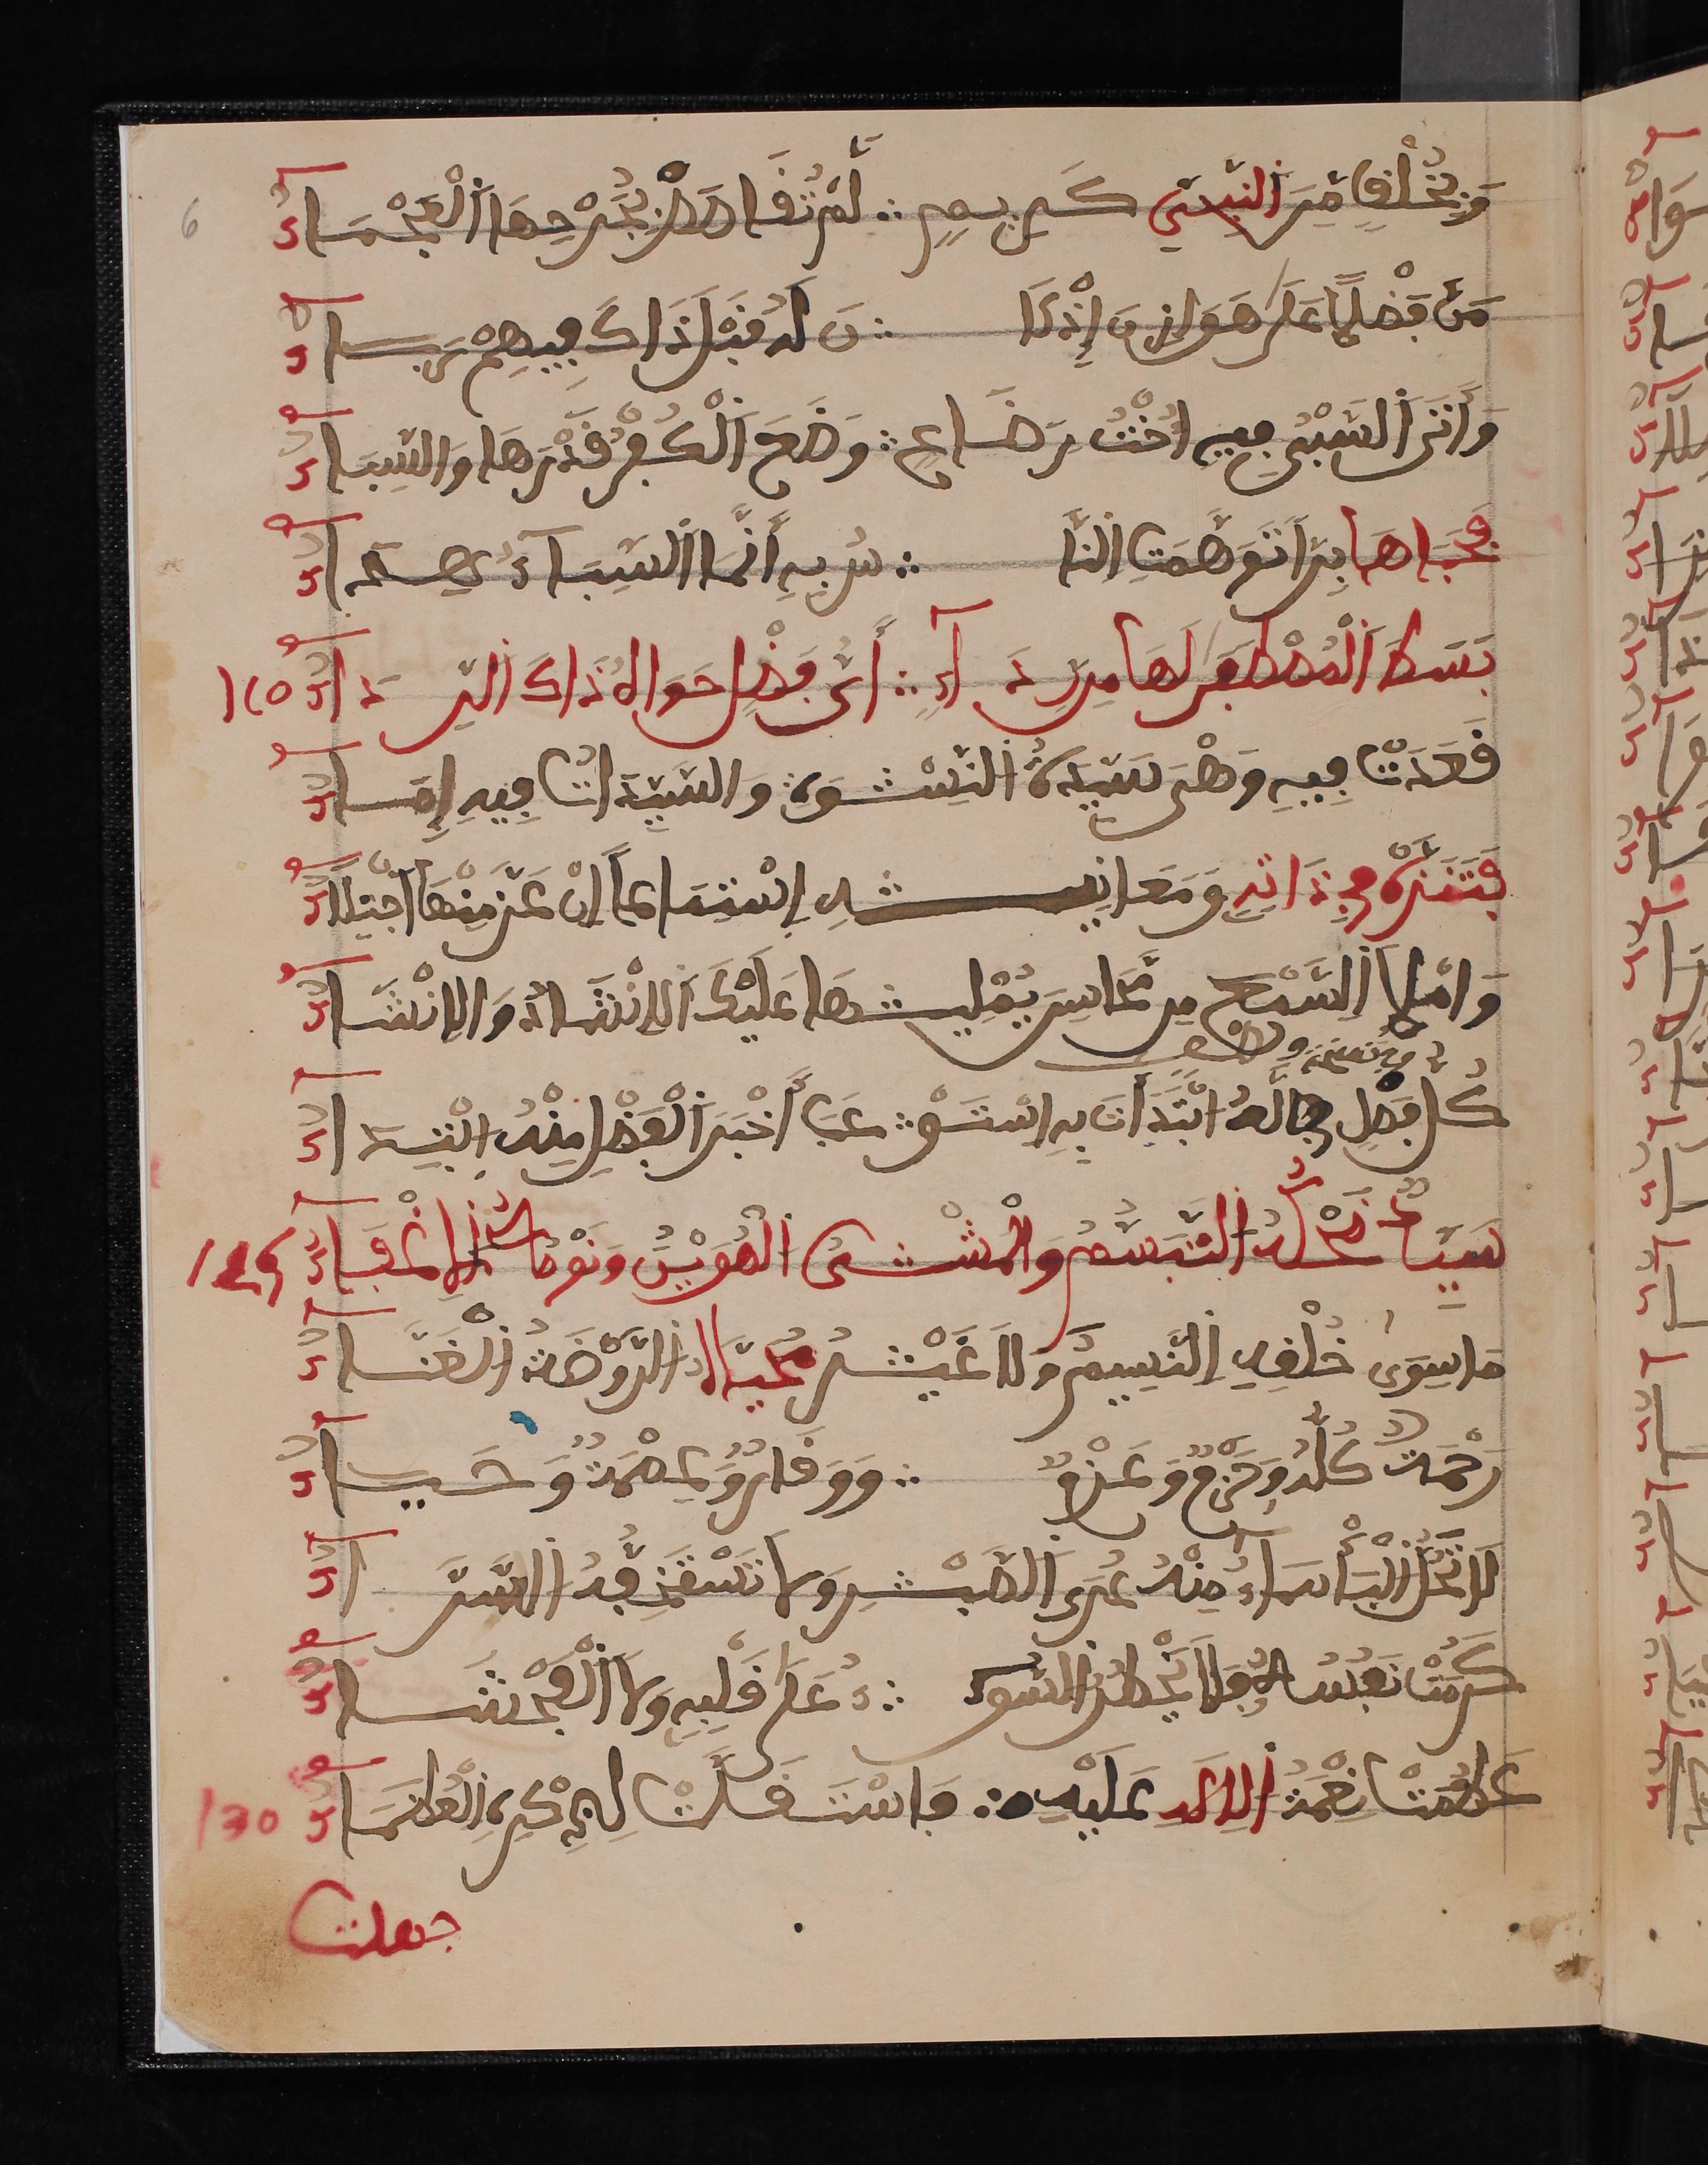 6
وَبِخُلْقٍ مِنَ النَّبِيِّ كَرِيمٍ ∴ لَمْ تُقَاصَصْ بِجُرْحِهَا الْعَجْمَاءُ
مَنَّ فَضْلًا عَلَى هَوَازِنَ إِذْ كَا ∴ نَ لَهُ قَبْلَ ذَاكَ فِيهِمْ رَبَاءُ
وَأَتَى السَّبْيُ فِيهِ أُخْتُ رَضَاعٍ ∴ وَضَعَ الْكُفْرُ قَدْرَهَا وَالسِّبَاءُ
فَحَبَاهَا بِرًّا تَوَهَّمَتِ النَّا ∴ سُ بِهِ أَنَّمَا السِّبَاءُ هِدَاءُ
بَسَطَ الْمُصْطَفَى لَهَا مِنْ رِدَاءٍ ∴ أَيُّ فَضْلٍ حَوَاهُ ذَاكَ الرِّدَاءُ 120
فَغَدَتْ فِيهِ وَهْيَ سَيِّدَةُ النِّسْوَةِ وَالسَّيِّدَاتُ فِيهِ إِمَاءُ
فَتَنَزَّهْ فِي ذَاتِهِ وَمَعَانِيهِ اسْتِمَاعًا إِنْ عَزَّ مِنْهَا اجْتِلَاءُ
وَامْلَإِ السَّمْعَ مِنْ مَحَاسِنَ يُمْلِيهَا عَلَيْكَ الْإِنْشَادُ وَالْإِنْشَاءُ
كُلُّ فَضْلٍ لَهُ ابْتَدَأْتَ بِهِ اسْتَوْ ∴ عَبَ أَخْبَرَ الْفَضْلِ مِنْهُ ابْتِدَاءُ
سَيِّدٌ ضَحْكُهُ التَّبَسُّمُ وَالْمَشْيُ الْهُوَيْنَا وَنَوْمُهُ الْإِغْفَاءُ 125
مَا سِوَى خُلْقِهِ النَّسِيمُ وَلَا غَيْرُ مُحَيَّاهُ الرَّوْضَةُ الْغَنَّاءُ
رَحْمَةٌ كُلُّهُ وَحَزْمٌ وَعَزْمٌ ∴ وَوَقَارٌ وَعِصْمَةٌ وَحَيَاءُ
لَا تَحُلُّ الْبَأْسَاءُ مِنْهُ عُرَى الصَّبْرِ وَلَا تَسْتَخِفُّهُ السَّرَّاءُ
كَرُمَتْ نَفْسُهُ فَلَا يَخْطُرُ السُّو ∴ ءُ عَلَى قَلْبِهِ وَلَا الْفَحْشَاءُ
عَظُمَتْ نِعْمَةُ الْإِلَهِ عَلَيْهِ ∴ فَاسْتَقَلَّتْ لِذِكْرِهِ الْعُظَمَاءُ 130
جهلت